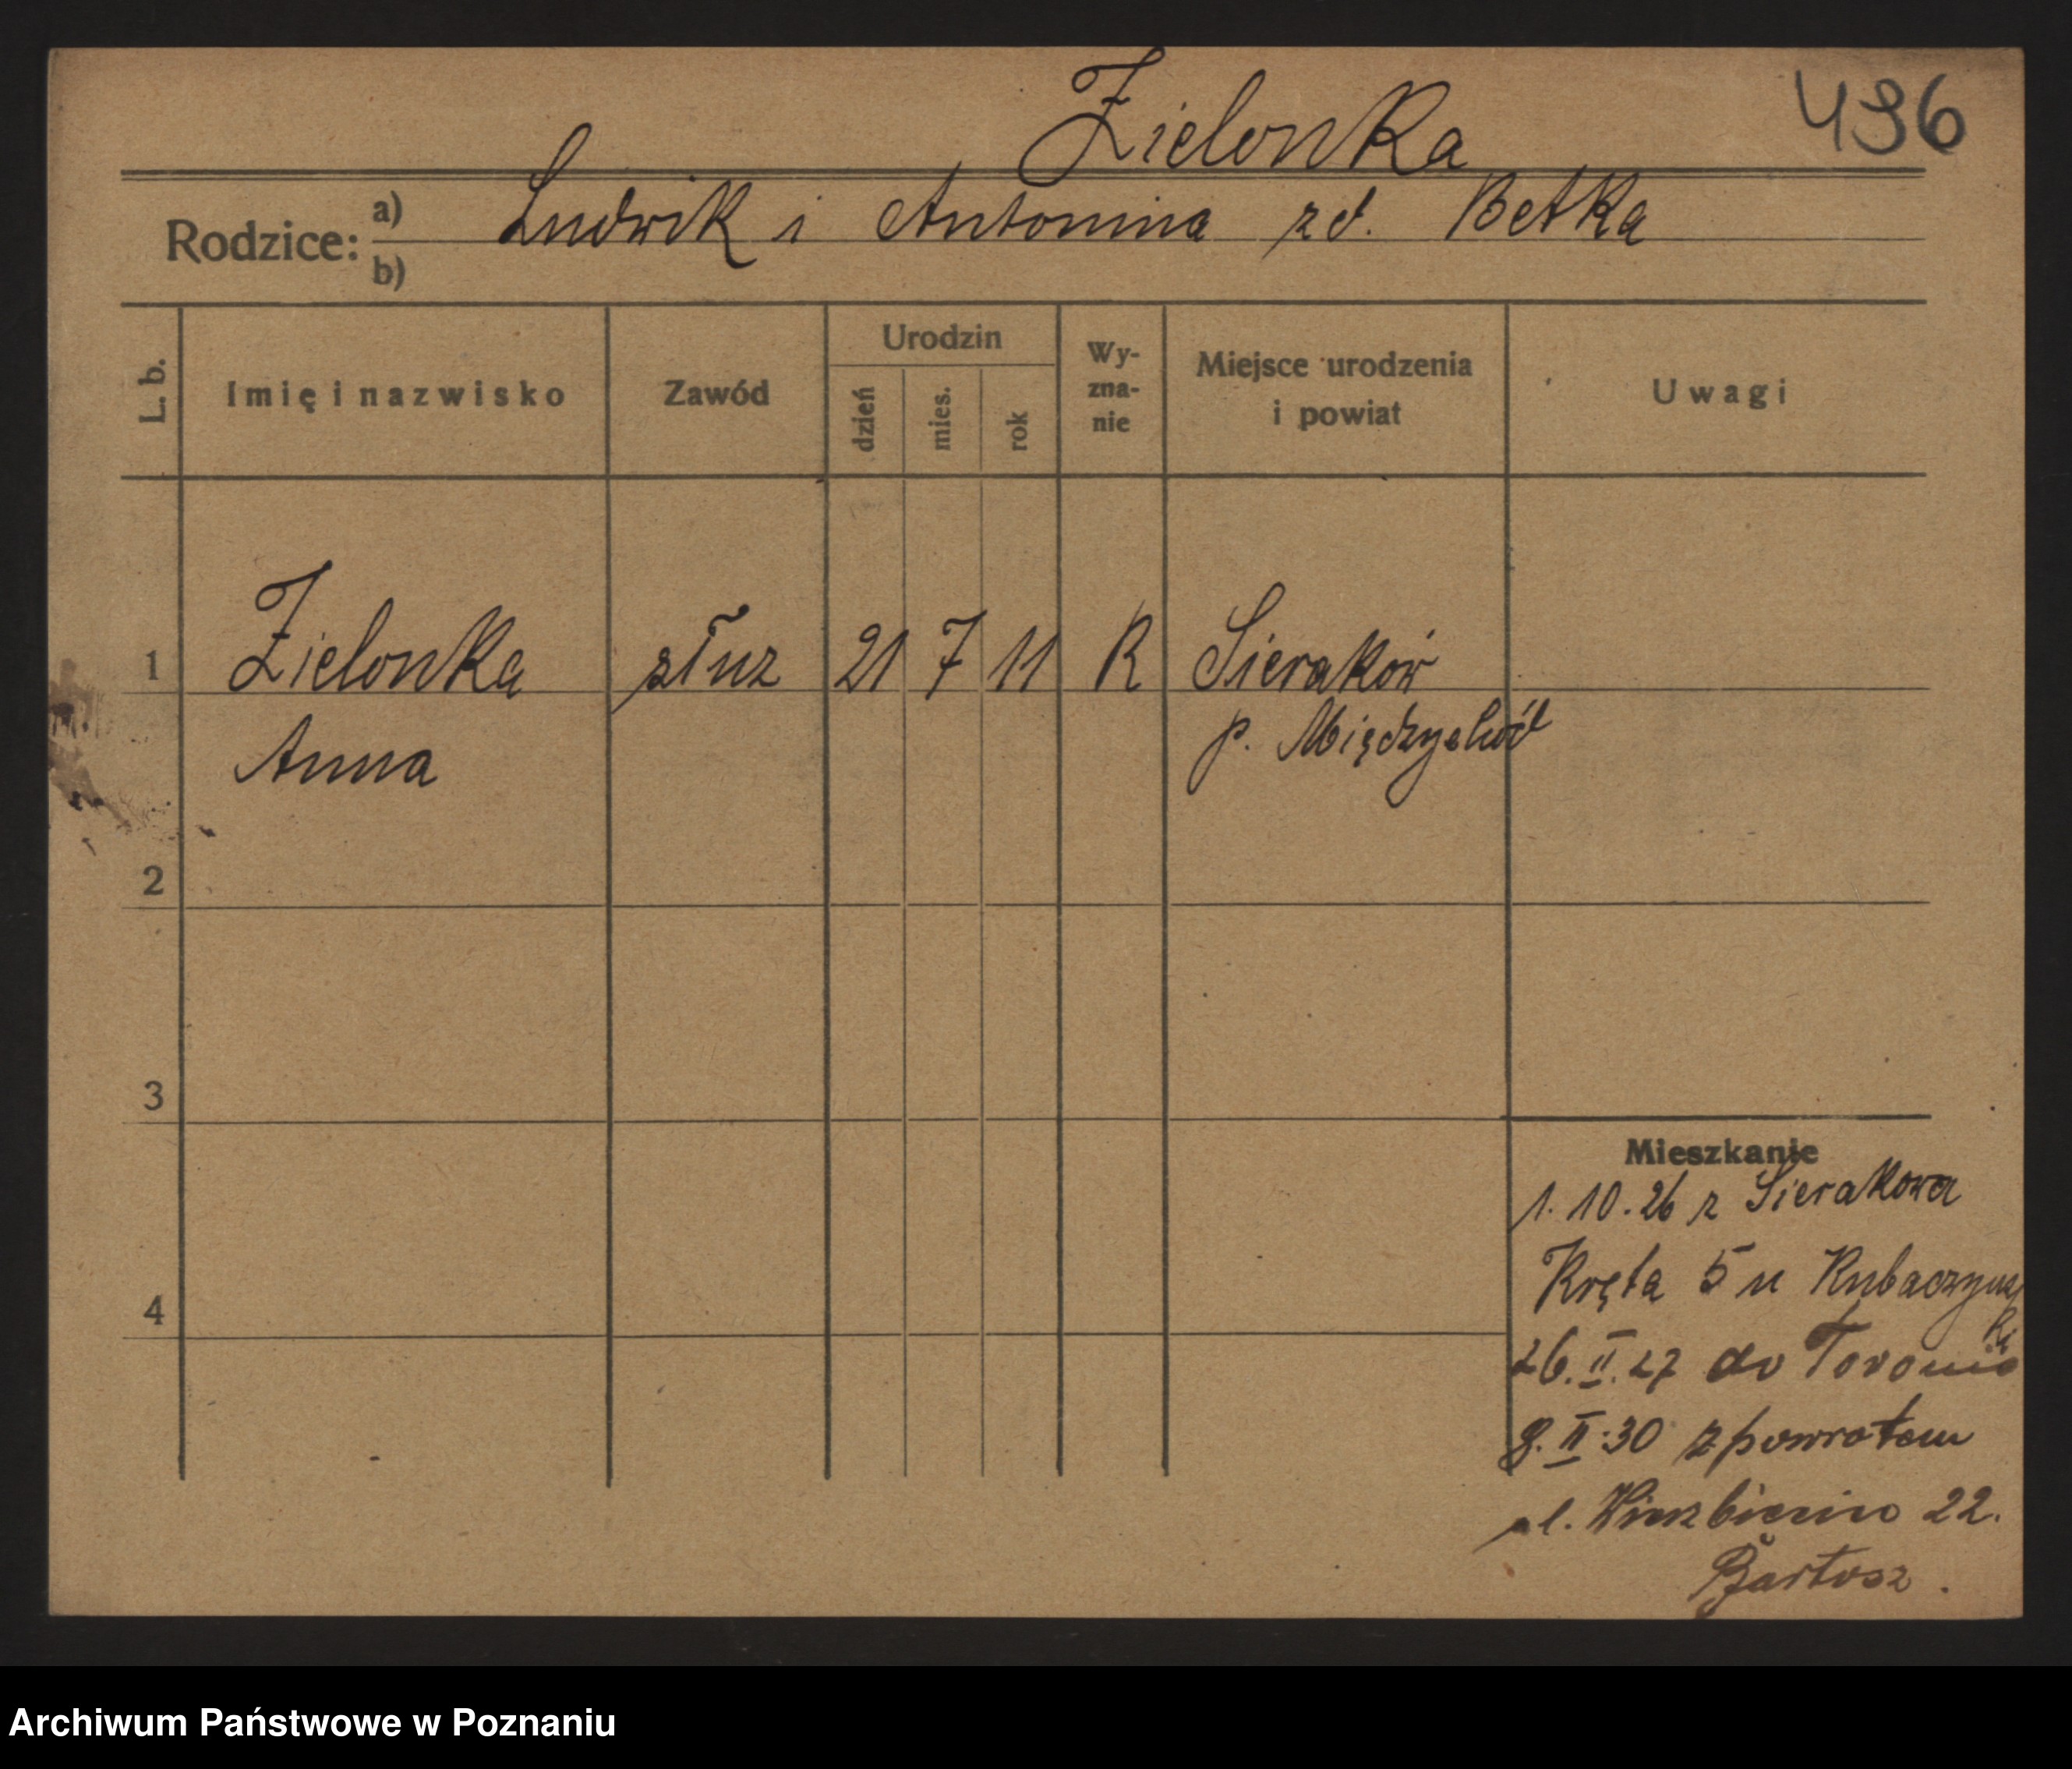 Zielonka
496
Rodzice: a) Ludwik i Antonina zd. Betka
b)
L. b.
Imię i nazwisko
Zawód
Urodzin
dzień
mies.
rok
Wy-
zna-
nie
Miejsce urodzenia
i powiat
Uwagi
1 Zielonka służ 21 7 11 R Sieraków
Anna p. Międzychód
2
3
4
Mieszkanie
1. 10. 26 z Sierakowa
Kręta 5 u
26. II. 27 do
8. II. 30 z powrotem
22.
Bartosz.
Archiwum Państwowe w Poznaniu